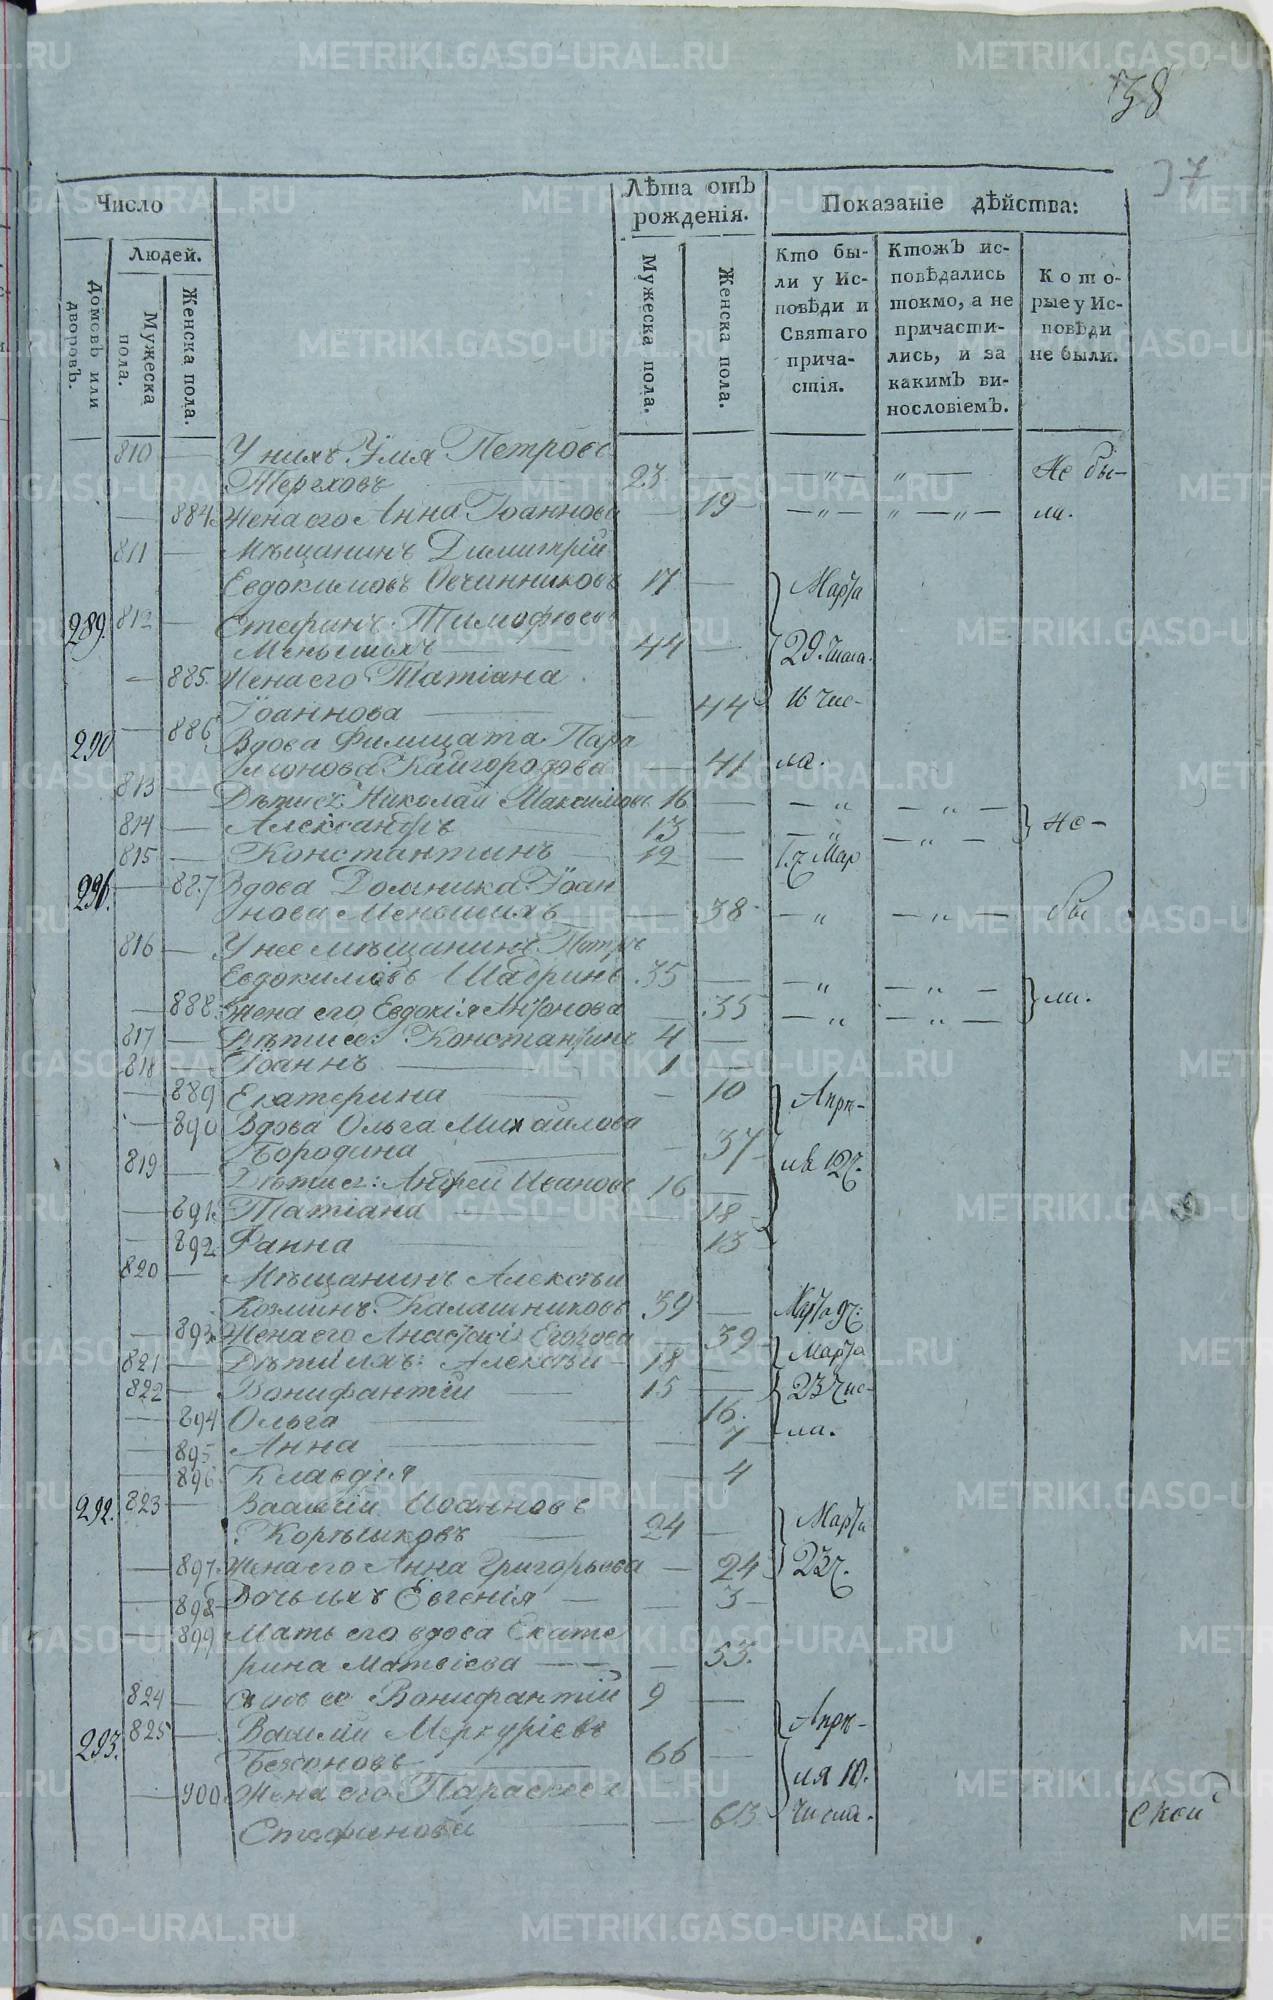 38
37
Число
Лѣта отъ рожденія.
Показаніе дѣйства:
Людей.
Домовъ или дворовъ.
Мужеска пола.
Женска пола.
Мужеска пола.
Женска пола.
Кто были у Исповѣди и Святаго причастія.
Ктожъ исповѣдались токмо, а не причастились, и за какимъ винословіемъ.
Которые у Исповѣди не были.
810 — У нихъ Петровъ
23 — „ — „ — Не бы-
— 884. Жена его Анна Іоаннова — 19 — „ — „ — „ — ли.
811 — Мѣщанинъ Димитрій
Евдокимовъ Овчинниковъ 17 — Марта
289. 812 — Стефанъ Тимофѣевъ
Меньшихъ — 44 — 29. числа.
— 885. Жена его Татіана
Іоаннова — 44 16 чис-
290 — 886 Вдова Филицата Пар
ѳионова Кайгородова — 41 ла.
813 — Дѣти ея: Николай Максимовъ 16 — — „ — „ —
814 — Александръ 13 — — „ — „ — Не-
815 — Константинъ 12 — Мар
291. — 887 Вдова Домника Іоан
нова Меньшихъ — 38 — „ — „ — бы
816 — У нее мѣщанинъ Петръ
Евдокимовъ Шабринъ 35 — — „ — „ —
— 888. Жена его Евдокія Антонова — 35 — „ — „ — ли.
817 — Дѣти ее: Константинъ 4 —
818 — Іоаннъ — 1 —
— 889 Екатерина — 10 Апрѣ-
— 890 Вдова Ольга Михайлова
Бородина — 37 ля 12 ч.
819 — Дѣти ея: Андрей Ивановъ 16 —
— 891. Татіана — 18
— 892 Фаина — 13
820 — Мѣщанинъ Алексѣй
Козминъ Калашниковъ 39 — Марта 9 ч:
— 893. Жена его Анастасія Егорова — 39 Марта
821 — Дѣти ихъ: Алексѣй 18 —
822 — Вонифантій 15 — 23 чис-
— 894 Ольга — 16. ла.
— 895 Анна — 7
— 896 Клавдія — 4
292. 823 — Василій Иоанновъ
Корѣшковъ 24 — Марта
— 897. Жена его Анна Григорьева — 24 23 ч.
— 898 Дочь ихъ Евгенія — 3
— 899 Мать его вдова Екате
рина Матвіева — 53.
824 — Сынъ ее Вонифантій 9 —
293. 825 — Василій Меркуріевъ Апрѣ-
66 — ля 10.
— 900 Жена его Параскева
Стефанова — 63 числа.
ской